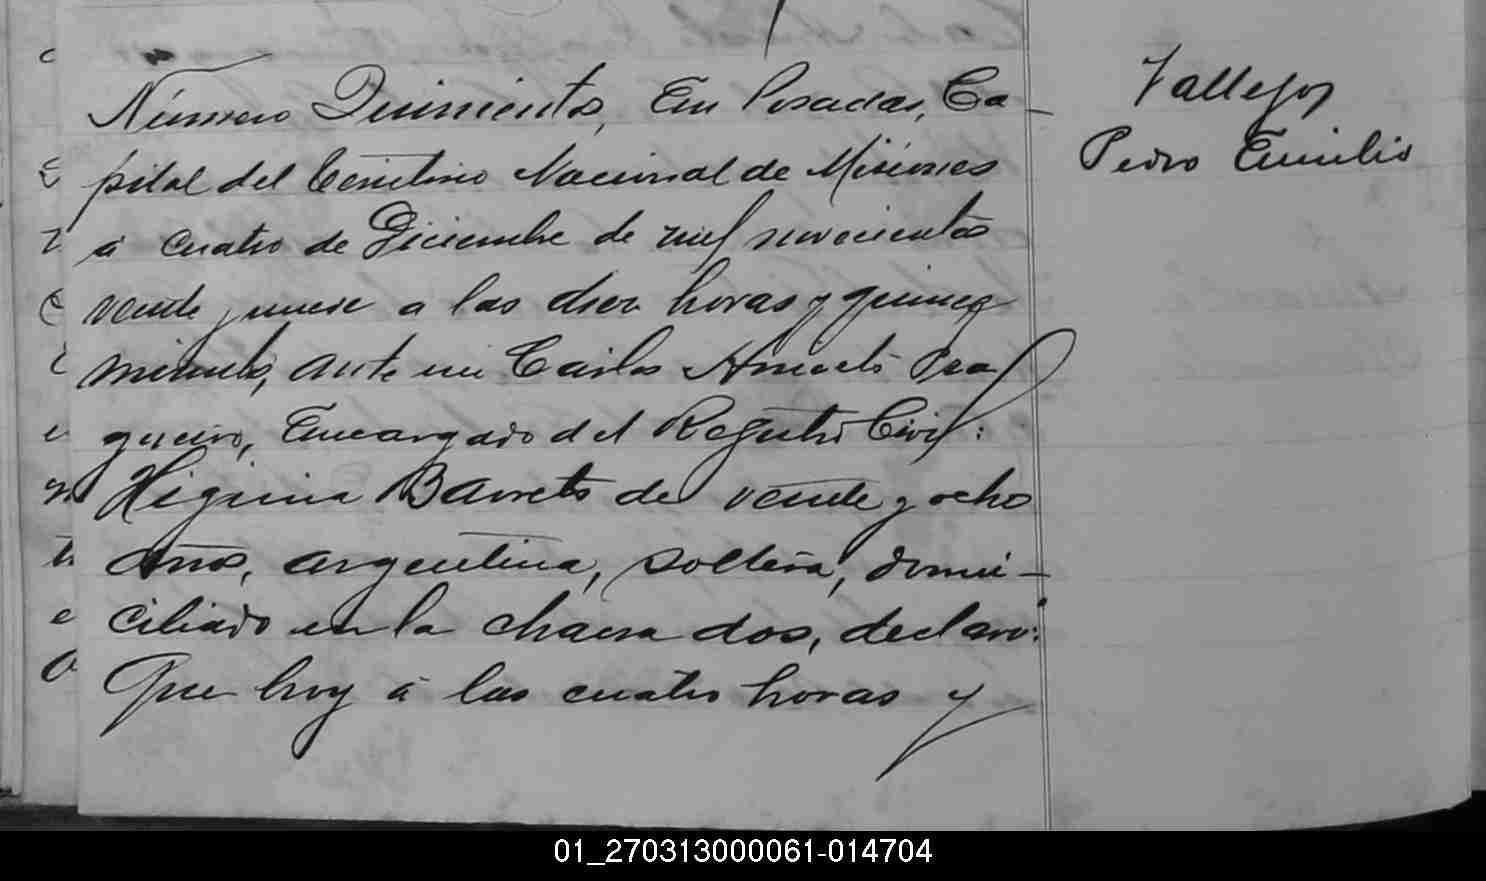 Número Quinientos, En Posadas, Ca-
pital del Territorio Nacional de Misiones
á cuatro de Diciembre de mil novecientos
veinte y nueve a las diez horas y quince
minutos, ante mi Carlos Ernesto
Encargado del Registro Civil:
Higinia Barreto de veinte y ocho
años, argentina, soltera, domi-
ciliado en la chacra dos, declaro:
Que hoy á las cuatro horas y
Vallejos
Pedro Emilio
01_270313000061-014704